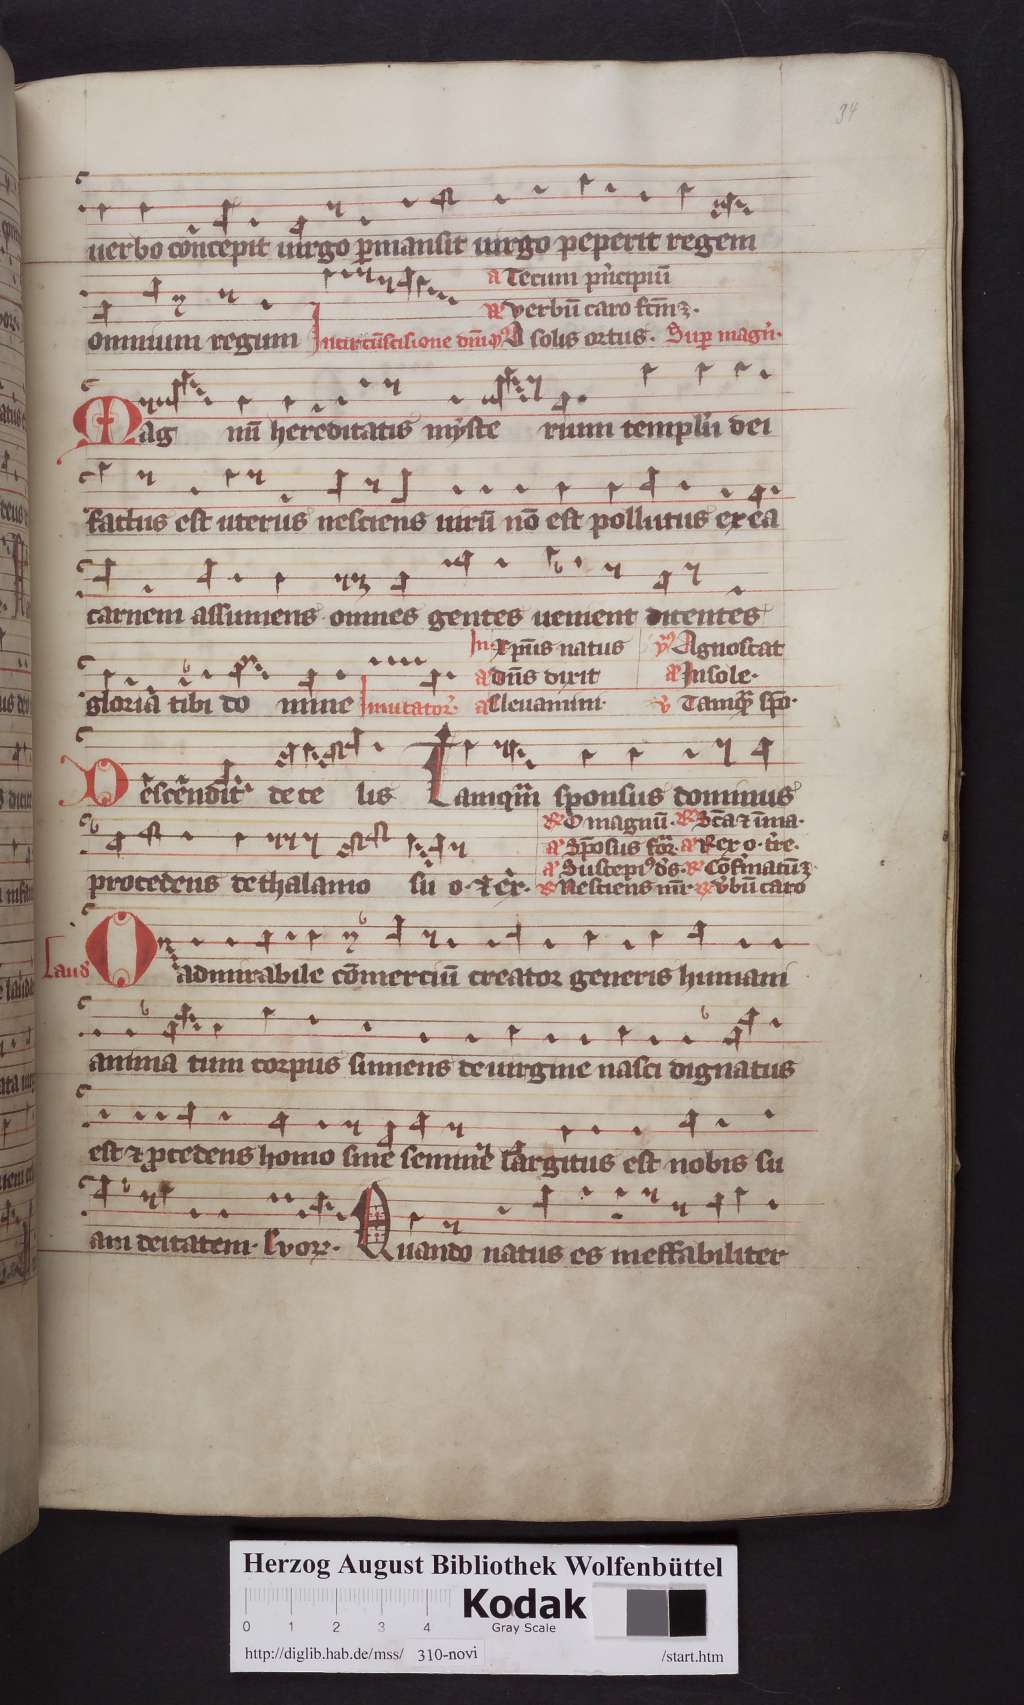 34
uerbo co͞ncepit uirgo ꝑmansit uirgo peperit regem
a Tecum pͥncipiu͞
R᷒ verbu͞ caro fc͞mꝫ·
omnium regum In circu͞scisione dn͞i hỹ A solis ortus· Suꝑ magn͛·
Mag nu͞ hereditatis myste rium templu͞ dei
factus est uterus nesciens uiru͞ no͞ est pollutus ex ea
carnem assumens omnes gentes uenient dicentes
In· xp͞ns natus v͛ Agnoscat
a dn͞s dixit a In sole·
gloria tibi do mine Inuitator͛· a Eleuamini· v͛ Tamqͣ spo͞·
Descendit de ce lis Tamqͣm sponsus dominus
R᷒ O magnu͞· R᷒ Sc͞a ⁊ i͞ma·
a Spo͞sus for͛· a Rex o· t͛re·
a Suscepiꝰ ds͞· R᷒ Co͞firmatu͞ꝫ·
procedens de thalamo su o· ⁊ ex͛· R᷒ Nesciens m͞r· R᷒ v͛bu͞ caro
Laud͛ O admirabile co͞merciu͞ creator generis humani
anima tum corpus sumens de uirgine nasci dignatus
est ⁊ ꝓcedens homo sine semine largitus est nobis su
am deitatem· Evoꝝ· Quando natus es ineffabiliter
Herzog August Bibliothek Wolfenbüttel
Kodak
Gray Scale
0 1 2 3 4
http://diglib.hab.de/mss/ 310-novi /start.htm